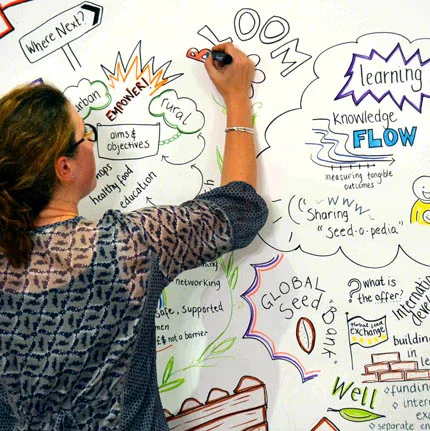 Where Next?
BLOOM
urban
EMPOWER!
rural
aims &
objectives
healthy food
education
learning
knowledge
FLOW
measuring tangible
outcomes
www
Sharing
"seed-o-pedia"
networking
safe, supported
not a barrier
GLOBAL
Seed
"Bank"
? what is
the offer?
International
exchange
building
in
Well
funding
separate